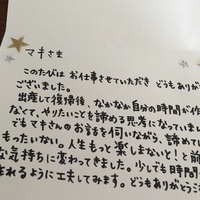 マキさま
このたびは お仕事させていただき どうもありが
ございました。
出産して復帰後、なかなか自分の時間が作
なくて、やりたいことを諦める思考になっていまし
でもマキさんのお話を伺いながら、諦めてい
もったいない。人生もっと楽しまないと！と前
な気持ちに変わってきました。少しでも時間
まれるように工夫してみます。どうもありがとうござ